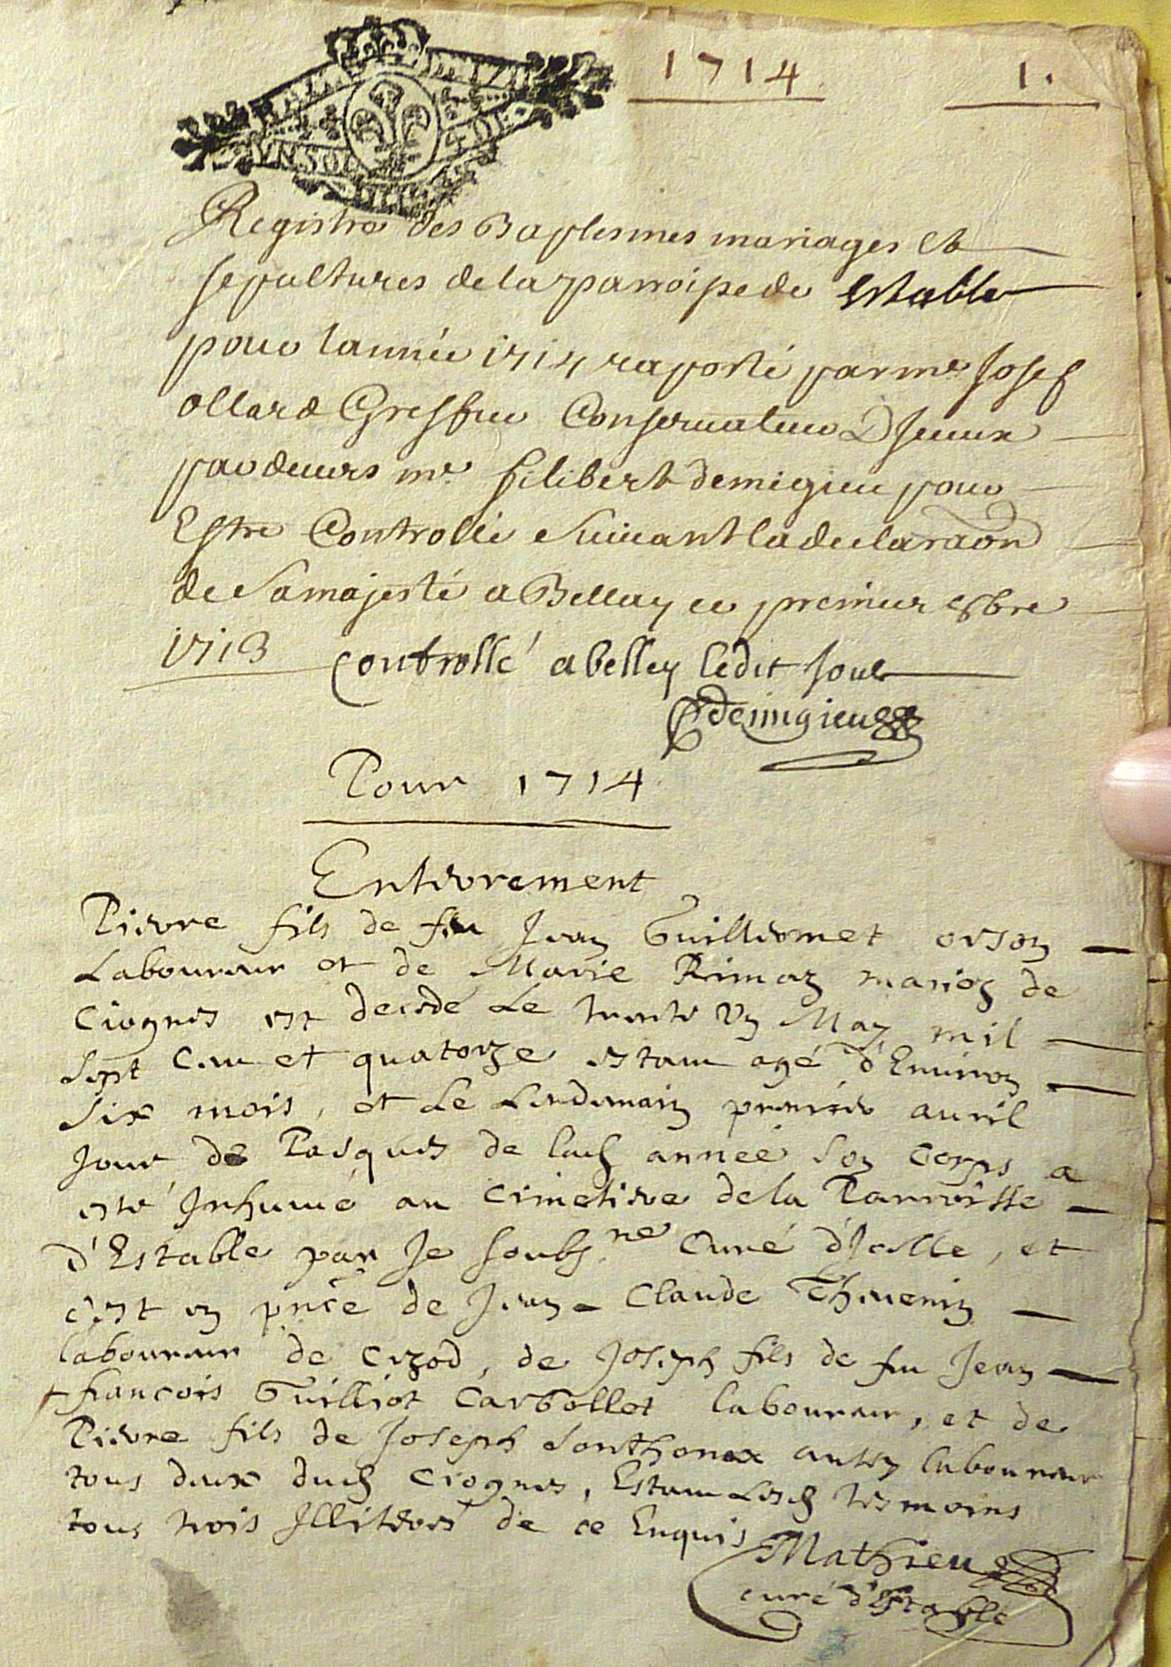 1714
1.
UN SOL
Registre des Baptesmes mariages et
sepultures de la parroisse de Estable
pour lannée 1714 raporté par me Josef
ollard Greffier Conservateur D Iceux
pardevers mr. filibert demigieu pour
Estre Controllé Suivant la declaraon
de Samajesté a Bellay ce premier 8bre
1713 Controllé a belley ledit Jour
Demigieu
Pour 1714
Enterrement
Pierre fils de feu Jean Guilliermet
Laboureur et de Marie Rimaz mariez de
Ciognes est decedé Le trente Un May mil
Sept Cent et quatorze estant agé d'Environ
Six mois, et Le Lendemain premier avril
Jour de Pasques de lad annee Son Corps a
esté Inhumé au Cimetiere de la Parroisse
d'Estable par Je Soubs.né Curé d'Icelle, et
c'est en pñce de Jean-Claude Thevenin
laboureur de Cizod, de Joseph fils de feu Jean
francois Guilliot Carbollet laboureur, et de
Pierre fils de Joseph Sonthonax aussy laboureur
tous deux dud Ciognes, Estant Lesd tesmoins
tous trois Illiterés de ce Enquis
Mathieu
curé d'Estable